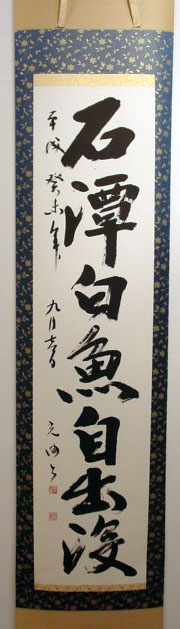 石潭白魚自出没
平成癸未年 九月